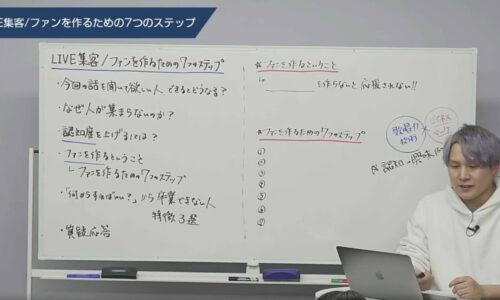 E集客/ファンを作るための7つのステップ
LIVE集客/ファンを作るための7つのステップ
・今回の話を聞いて欲しい人 できるとどうなる?
・なぜ人が集まらないのか?
・認知度を上げるとは?
・ファンを作るということ
└ファンを作るための7つのステップ
・「何からすればいい?」から卒業できない人
特徴3選
・質疑応答
※ファンを作るということ
を作らないと応援されない!!
※ファンを作るための7つのステップ
①
②
③
④
⑤
⑥
⑦
×